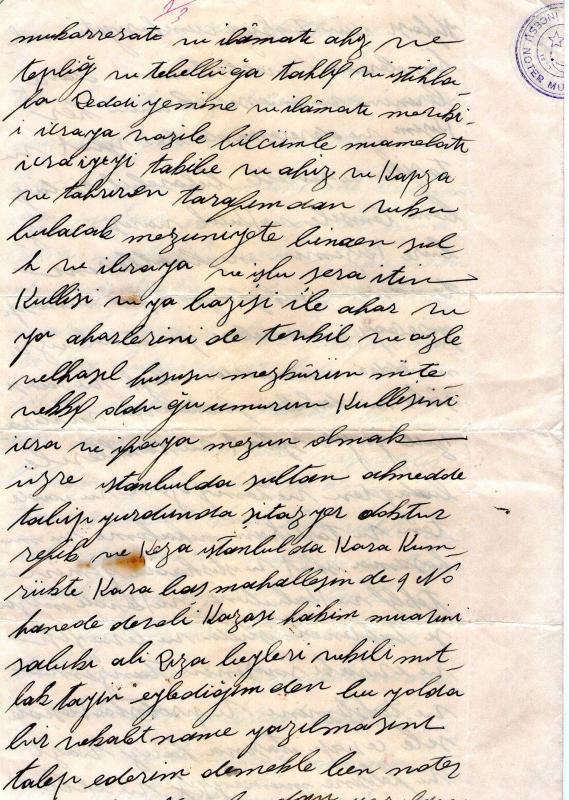 mukarreratı ve ilâmatı ahiz ve
tepliğ ve tebellüğa tahlif ve istihla-
fa reddi yemine ve ilâmatı mevki-
i icraya vazile bilcümle muamelatı
icraiyeyi takibe ve ahiz ve Kapza
ve tahriren tarafımdan vuku
bulacak mezuniyete binaen sul-
h ve ibraya ve işbu şeraitin
Küllisi veya bazisi ile ahar ve
ya aharlerini de tevkil ve azle
velhasıl hususu mezbûrün müte
vakkıf olduğu umurun Küllisini
icra ve ifaya mezun olmak
üzre istanbulda sultan ahmedde
talebe yurdunda sitajyer doktur
refik ve Keza istanbulda Kara Küm-
rükte Kara baş mahallesinde 9 No
hanede develi Kazası hâkim muavini
sabıkı ali Rıza beyleri vekili mut-
lak tayin eylediğimden bu yolda
bir vekâletname yazılmasını
talep ederim demekle ben noter
İNCESU NOTER